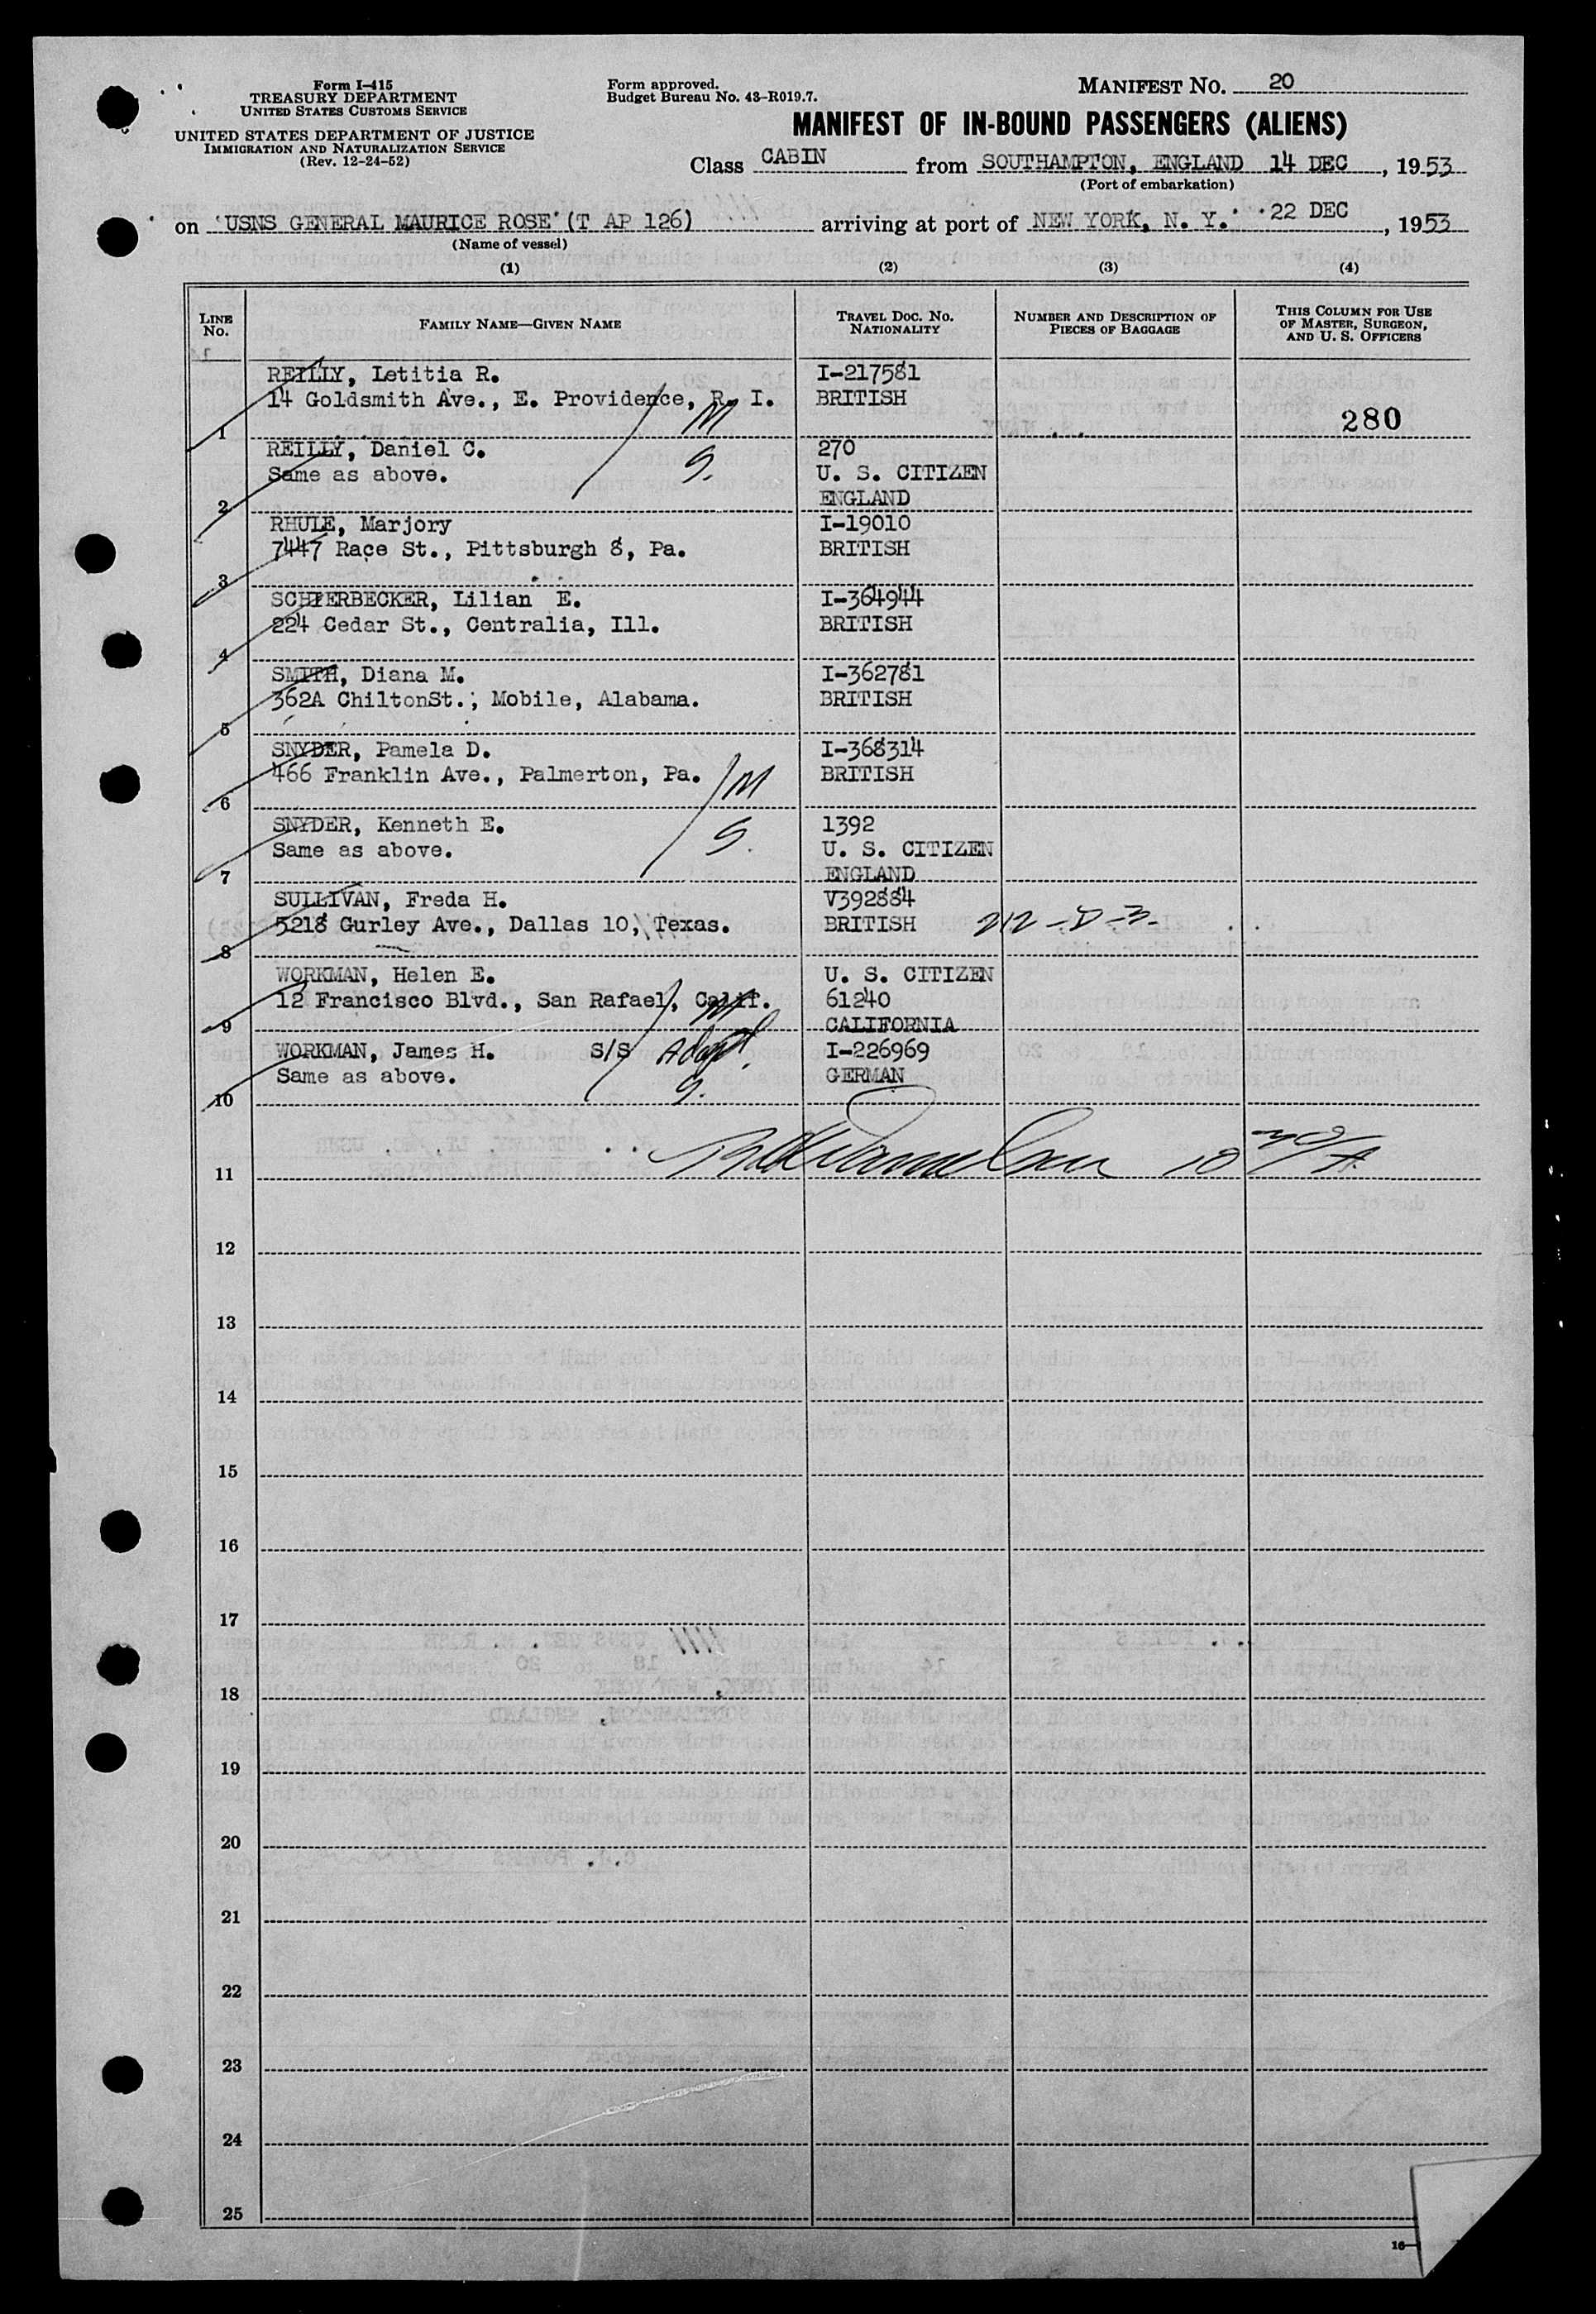 Form I-415
TREASURY DEPARTMENT
UNITED STATES CUSTOMS SERVICE
UNITED STATES DEPARTMENT OF JUSTICE
IMMIGRATION AND NATURALIZATION SERVICE
(Rev. 12-24-52)
Form approved.
Budget Bureau No. 43-R019.7.
MANIFEST NO. 20
MANIFEST OF IN-BOUND PASSENGERS (ALIENS)
Class CABIN from SOUTHAMPTON, ENGLAND 14 DEC, 1953
(Port of embarkation)
on USNS GENERAL MAURICE ROSE (T AP 126) arriving at port of NEW YORK, N. Y. 22 DEC, 1953
(Name of vessel)
(1) (2) (3) (4)
LINE NO. FAMILY NAME—GIVEN NAME TRAVEL DOC. NO. NATIONALITY NUMBER AND DESCRIPTION OF PIECES OF BAGGAGE THIS COLUMN FOR USE OF MASTER, SURGEON, AND U. S. OFFICERS
REILLY, Letitia R. I-217581
14 Goldsmith Ave., E. Providence, R. I. BRITISH
1 M 280
REILLY, Daniel C. 270
Same as above. S. U. S. CITIZEN
2 ENGLAND
RHULE, Marjory I-19010
7447 Race St., Pittsburgh 8, Pa. BRITISH
3
SCHIERBECKER, Lilian E. I-364944
224 Cedar St., Centralia, Ill. BRITISH
4
SMITH, Diana M. I-362781
362A ChiltonSt., Mobile, Alabama. BRITISH
5
SNYDER, Pamela D. I-368314
466 Franklin Ave., Palmerton, Pa. BRITISH
6 M
SNYDER, Kenneth E. 1392
Same as above. S. U. S. CITIZEN
7 ENGLAND
SULLIVAN, Freda H. V392884
5218 Gurley Ave., Dallas 10, Texas. BRITISH 212-D-3-
8
WORKMAN, Helen E. U. S. CITIZEN
12 Francisco Blvd., San Rafael, Calif. 61240
9 M CALIFORNIA
WORKMAN, James H. S/S Adopt. I-226969
Same as above. S. GERMAN
10
11
12
13
14
15
16
17
18
19
20
21
22
23
24
25
16—